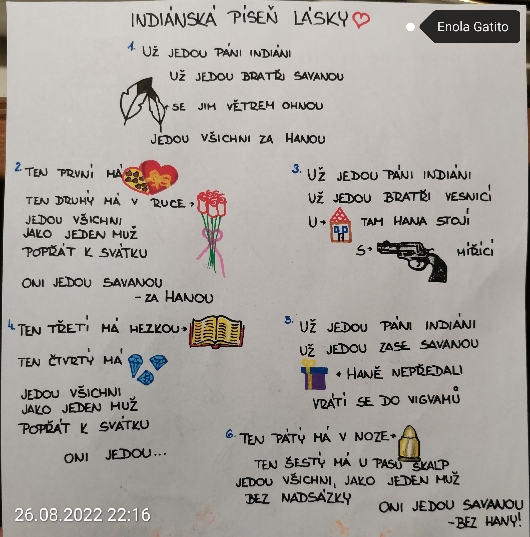 INDIÁNSKÁ PÍSEŇ LÁSKY
Enola Gatito
1. UŽ JEDOU PÁNI INDIÁNI
UŽ JEDOU BRATŘI SAVANOU
SE JIM VĚTREM OHNOU
JEDOU VŠICHNI ZA HANOU
2. TEN PRVNÍ MÁ
TEN DRUHÝ MÁ V RUCE
JEDOU VŠICHNI
JAKO JEDEN MUŽ
POPŘÁT K SVÁTKU
ONI JEDOU SAVANOU
- ZA HANOU
3. UŽ JEDOU PÁNI INDIÁNI
UŽ JEDOU BRATŘI VESNICÍ
U TAM HANA STOJÍ
S MÍŘÍCÍ
4. TEN TŘETÍ MÁ HEZKOU
TEN ČTVRTÝ MÁ
JEDOU VŠICHNI
JAKO JEDEN MUŽ
POPŘÁT K SVÁTKU
ONI JEDOU...
5. UŽ JEDOU PÁNI INDIÁNI
UŽ JEDOU ZASE SAVANOU
HANĚ NEPŘEDALI
VRÁTÍ SE DO VIGVAMŮ
6. TEN PÁTÝ MÁ V NOZE
TEN ŠESTÝ MÁ U PASU SKALP
JEDOU VŠICHNI, JAKO JEDEN MUŽ
BEZ NADSÁZKY
ONI JEDOU SAVANOU
- BEZ HANY!
26.08.2022 22:16